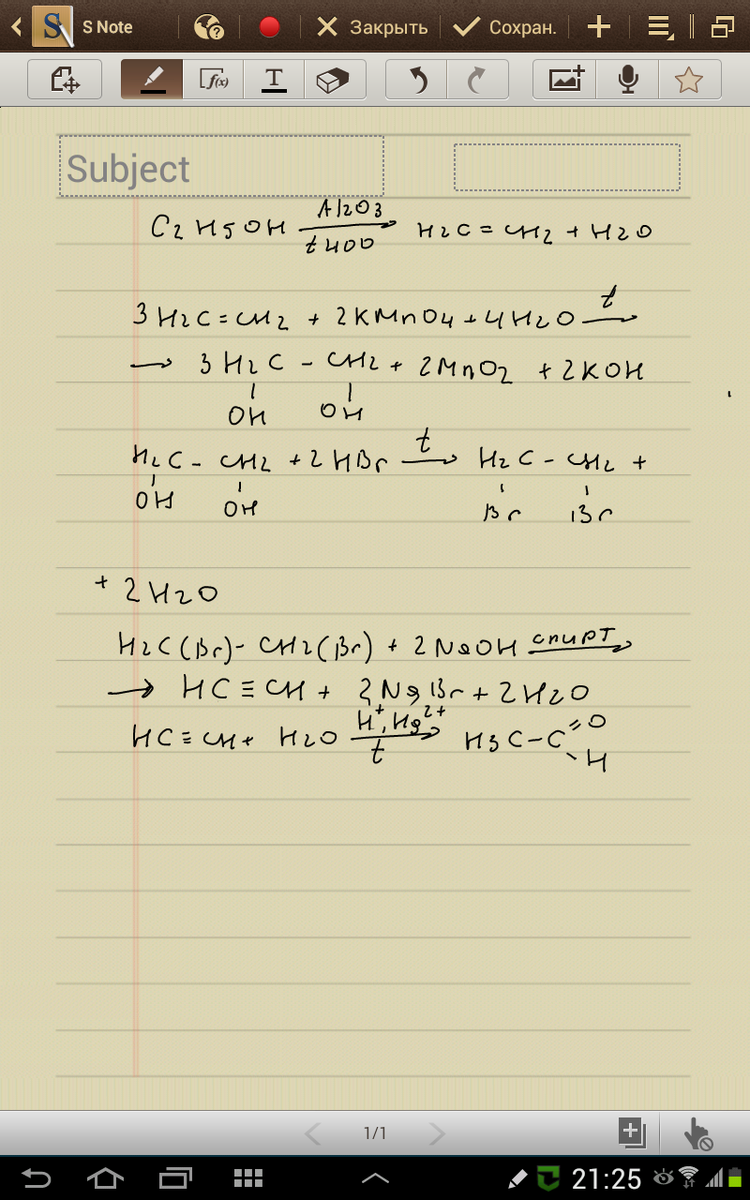 S Note Закрыть Сохран.
f(x) T
Subject
C2H5OH Al2O3 t400 → H2C=CH2 + H2O
3H2C=CH2 + 2KMnO4 + 4H2O t →
→ 3H2C – CH2 + 2MnO2 + 2KOH
OH OH
H2C – CH2 + 2HBr t → H2C – CH2 +
OH OH Br Br
+ 2H2O
H2C(Br)-CH2(Br) + 2NaOH спирт →
→ HC≡CH + 2NaBr + 2H2O
HC≡CH + H2O H+, Hg2+ t → H3C–C=O
H
1/1
21:25